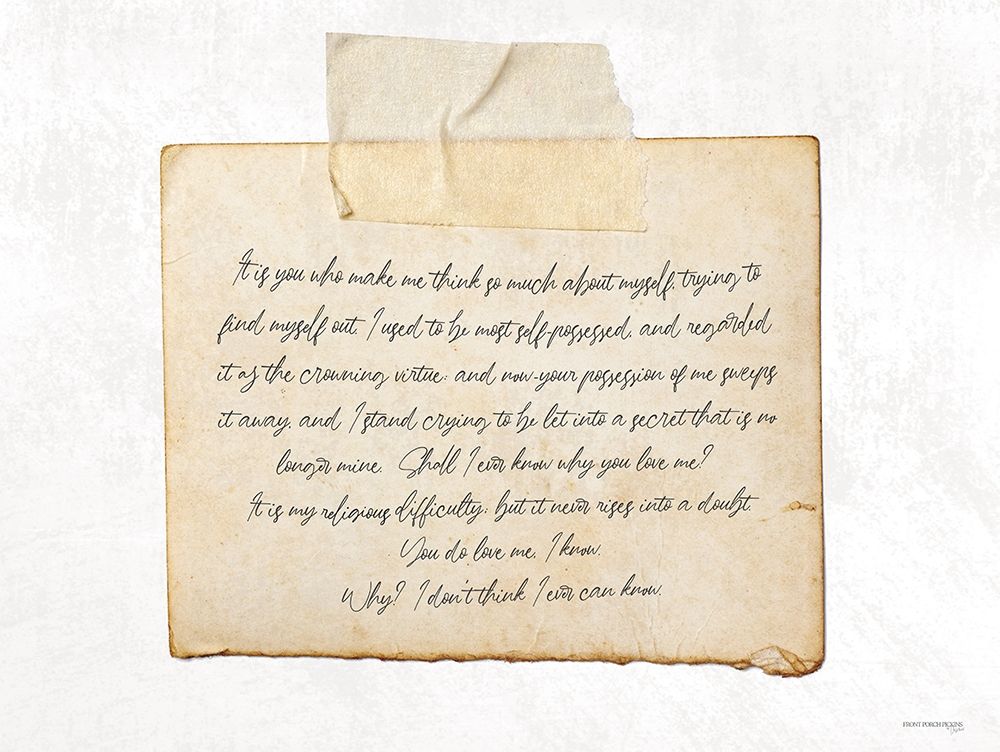 It is you who make me think so much about myself, trying to
find myself out. I used to be most self-possessed, and regarded
it as the crowning virtue: and now-your possession of me sweeps
it away, and I stand crying to be let into a secret that is no
longer mine. Shall I ever know why you love me?
It is my religious difficulty; but it never rises into a doubt.
You do love me, I know.
Why? I don't think I ever can know.
FRONT PORCH PICKINS